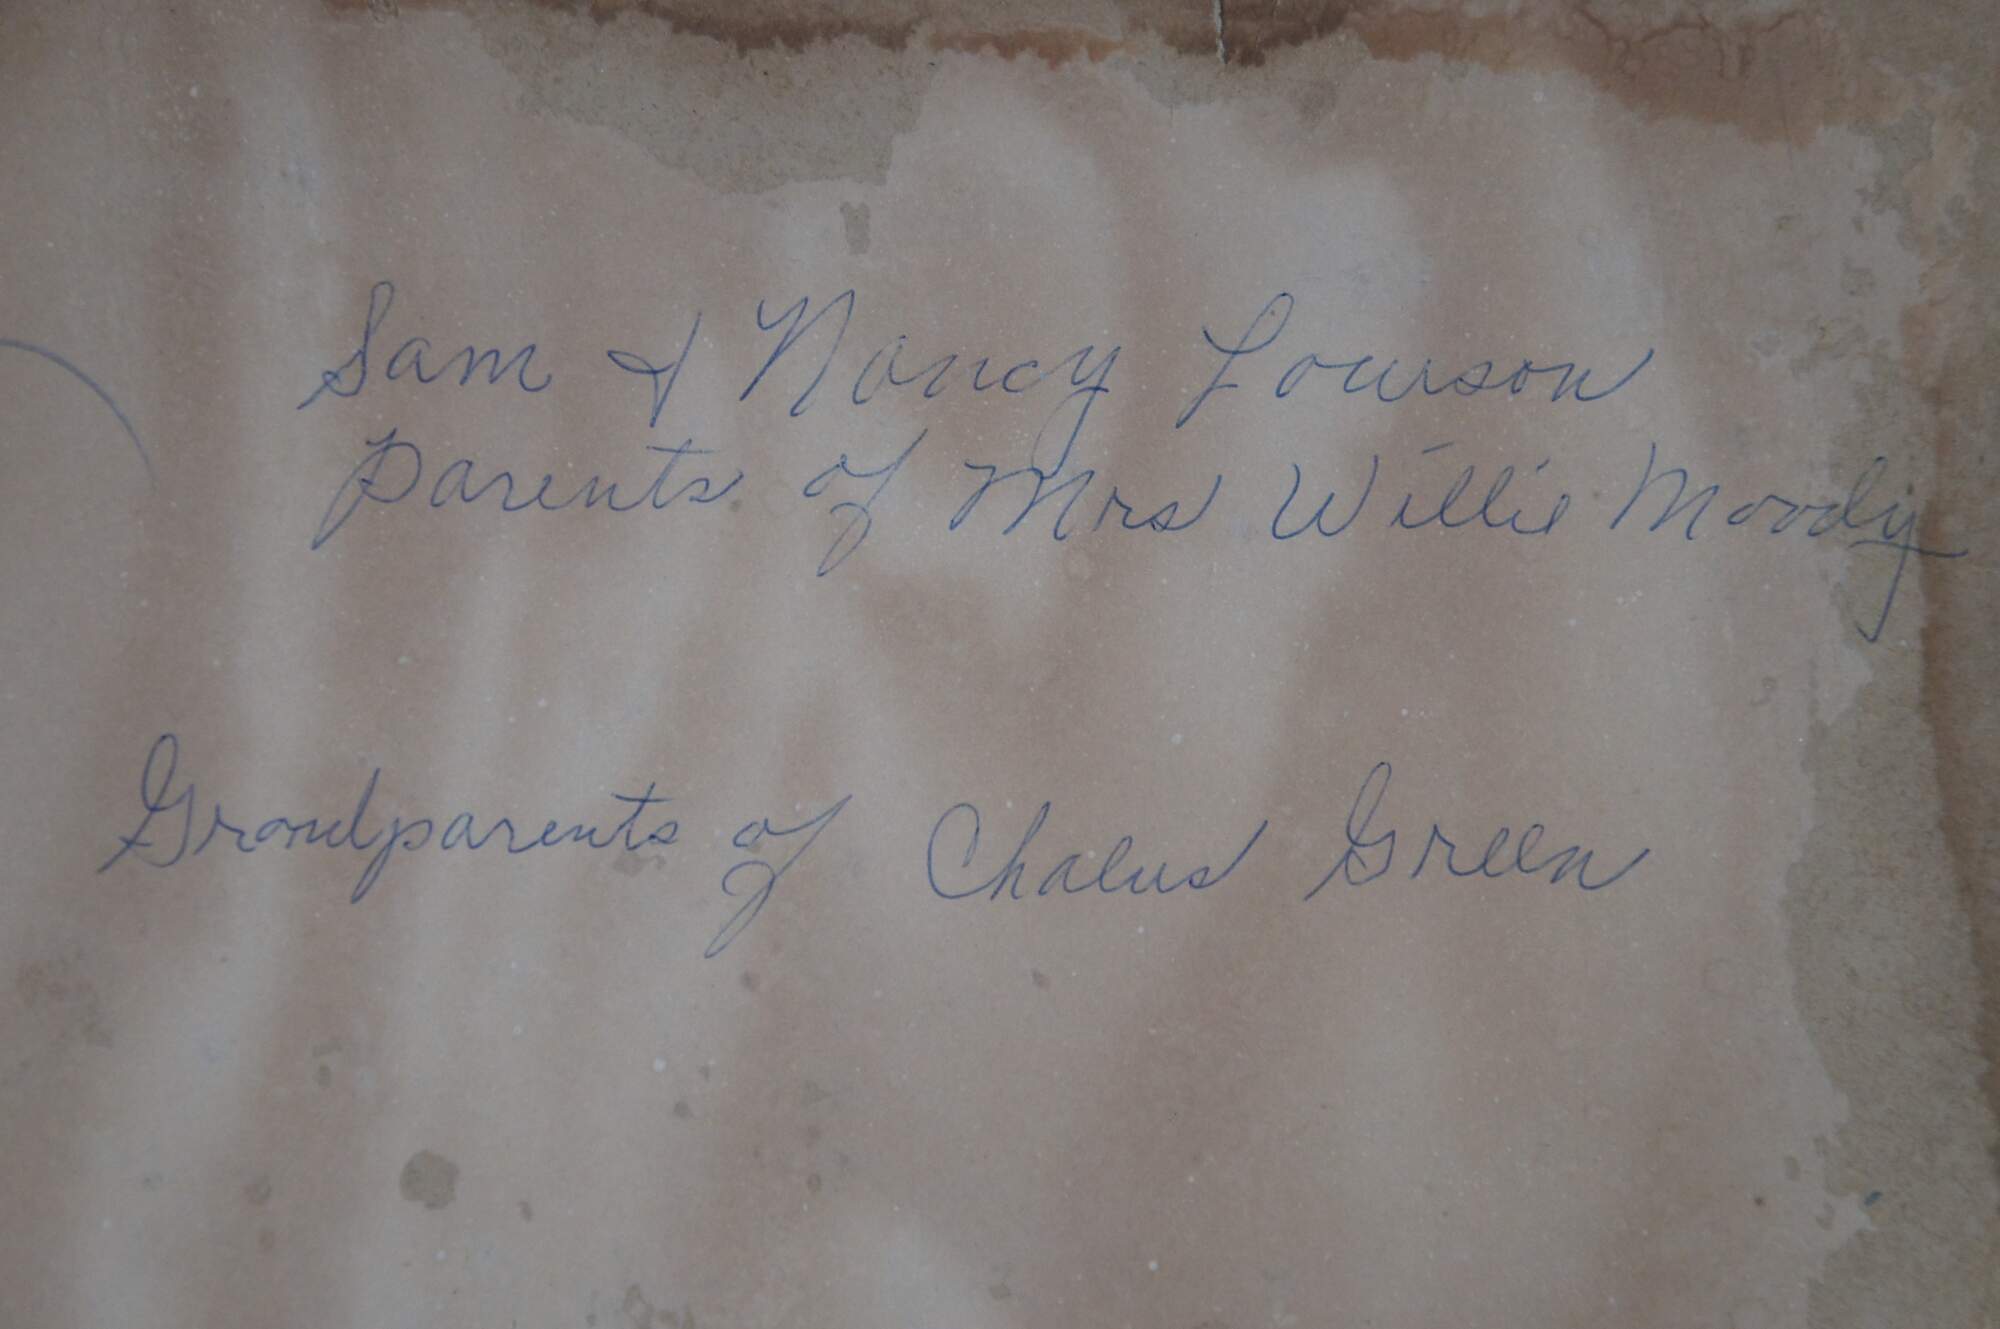 Sam & Nancy Lowrson
parents of Mrs Willie Moody
Grandparents of Chalus Green